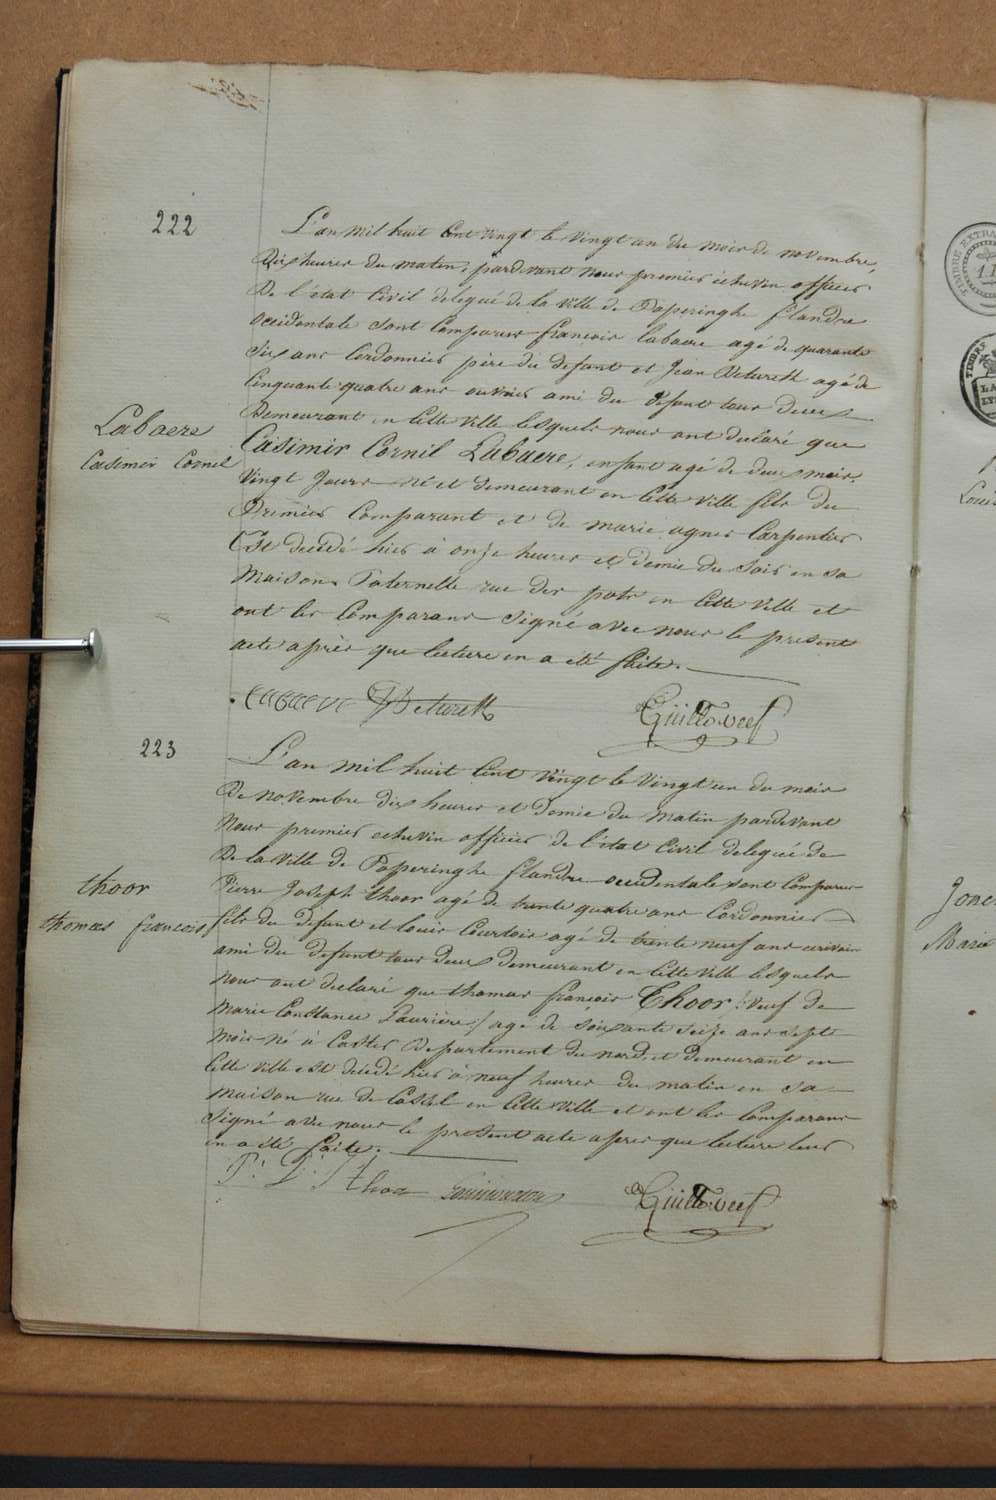 222
L'an mil huit Cent vingt le vingt un du mois de novembre,
Dix heures du matin, pardevant nous premier echevin officier
De l'état Civil delegué de la ville de Poperinghe flandre
occidentale sont Comparus françois labaere agé de quarante
six ans Cordonnier père du defunt et Jean Deturck agé de
Cinquante quatre ans ouvrier ami du defunt tous deux
Demeurant en Cette ville lesquels nous ont declaré que
Labaere
Casimir Cornil
Casimir Cornil Labaere, enfant agé de deux mois
vingt Jours né et demeurant en Cette ville fils du
Premier Comparant et de marie agnes Carpentier
Est decedé hier à onze heures et demie du soir en sa
Maison Paternelle rue des pots en Cette ville et
ont les Comparans signé avec nous le present
acte après que lecture en a été faite.
Labaere Deturck
223
L'an mil huit Cent vingt le vingt un du mois
De novembre dix heures et demie du matin pardevant
Nous premier echevin officier de l'état Civil delegué de
De la ville de Poperinghe flandre occidentale sont Comparus
thoor
thomas francois
Pierre Joseph thoor agé de trente quatre ans Cordonnier
fils du defunt et louis Courtois agé de trente neuf ans ecrivain
ami du defunt tous deux demeurant en Cette ville lesquels
nous ont declaré que thomas françois Thoor /: veuf de
Marie Constance Lauriere :/ agé de soixante seize ans sept
mois né à Caster Departement du nord et demeurant en
Cette ville est decedé hier à neuf heures du matin en sa
maison rue de Cassel en Cette ville et ont les Comparans
signé avec nous le present acte apres que lecture leur
en a été faite.
P: J: Thoor
Jone
Marie
Louis
TIMBRE EXTRA